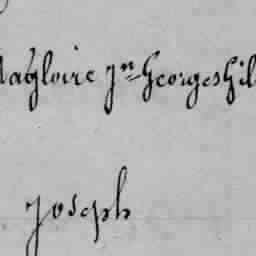 Magloire Jn Georges Gil
Joseph